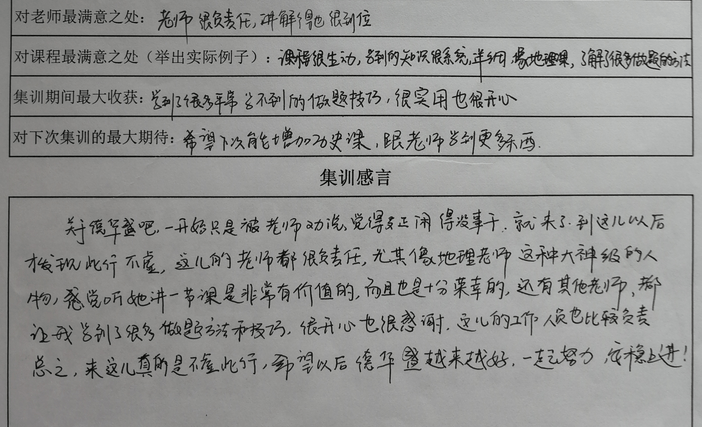 对老师最满意之处：老师很负责任，讲解得也很到位
对课程最满意之处（举出实际例子）：课程很生动，学到的知识很系统，像地理课，了解了很多做题的方法
集训期间最大收获：学到了很多平常学不到的做题技巧，很实用也很开心
对下次集训的最大期待：希望下次能增加历史课，跟老师学到更多东西.
集训感言
关于德华盛吧，一开始只是被老师劝说，觉得反正闲得没事干，就来了.到这儿以后
发现此行不虚，这儿的老师都很负责任，尤其像地理老师这种大神级的人
物，感觉听她讲一节课是非常有价值的，而且也是十分荣幸的，还有其他老师，都
让我学到了很多做题方法和技巧，很开心也很感谢，这儿的工作人员也比较负责
总之，来这儿真的是不虚此行，希望以后德华盛越来越好，一起努力 稳步上进！